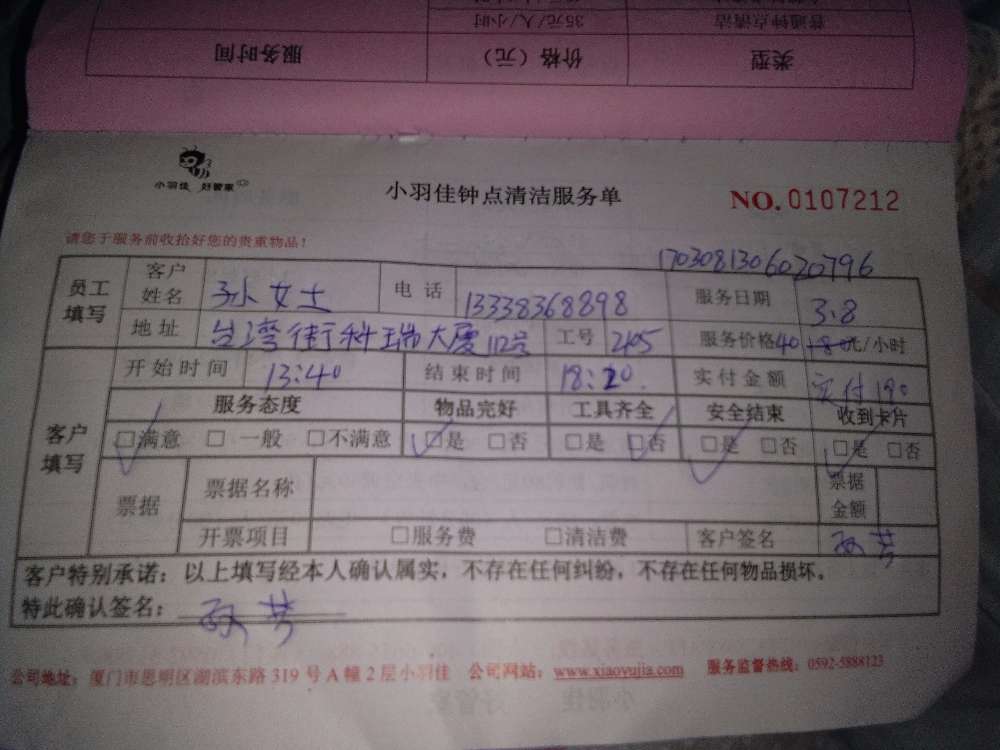 普通钟点清洁 35元/人/小时
类型 价格（元） 服务时间
小羽佳 好管家
小羽佳钟点清洁服务单
NO. 0107212
请您于服务前收拾好您的贵重物品！
1703081306020796
员工填写 客户姓名 孙女士 电话 13338368898 服务日期 3.8
地址 台湾街科瑞大厦112号 工号 205 服务价格40 元/小时
开始时间 13:40 结束时间 18:20 实付金额 实付190
客户填写 服务态度 物品完好 工具齐全 安全结束 收到卡片
□满意 □ 一般 □不满意 □是 □否 □是 □否 □是 □否 □是 □否
票据 票据名称 票据金额
开票项目 □服务费 □清洁费 客户签名 孙芳
客户特别承诺：以上填写经本人确认属实，不存在任何纠纷，不存在任何物品损坏。
特此确认签名：孙芳
公司地址：厦门市思明区湖滨东路 319 号 A 幢 2 层小羽佳 公司网站：www.xiaoyujia.com 服务监督热线：0592-5888123